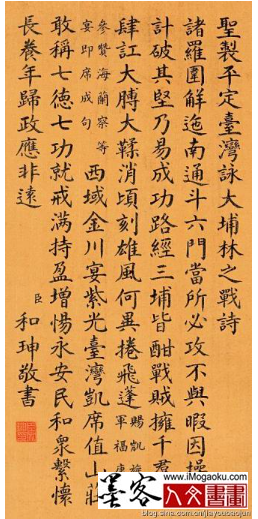 聖製平定臺灣詠大埔林之戰詩
諸羅圍解迤南通斗六門當所必攻不與暇因操
計破其堅乃易成功路經三埔皆酣戰賊擁千羣
肆訌大膊大鞣消頃刻雄風何異捲飛蓬
賜凱旋
軍福康
參贊海蘭察等
宴即席成句
西域金川宴紫光臺灣凱席值山莊
敢稱七德七功就戒滿持盈增惕永安民和衆繫懷
長養年歸政應非遠
臣
和珅敬書
www.iMogaoku.com
墨客
blog.sina.com.cn/jiayoubaojun